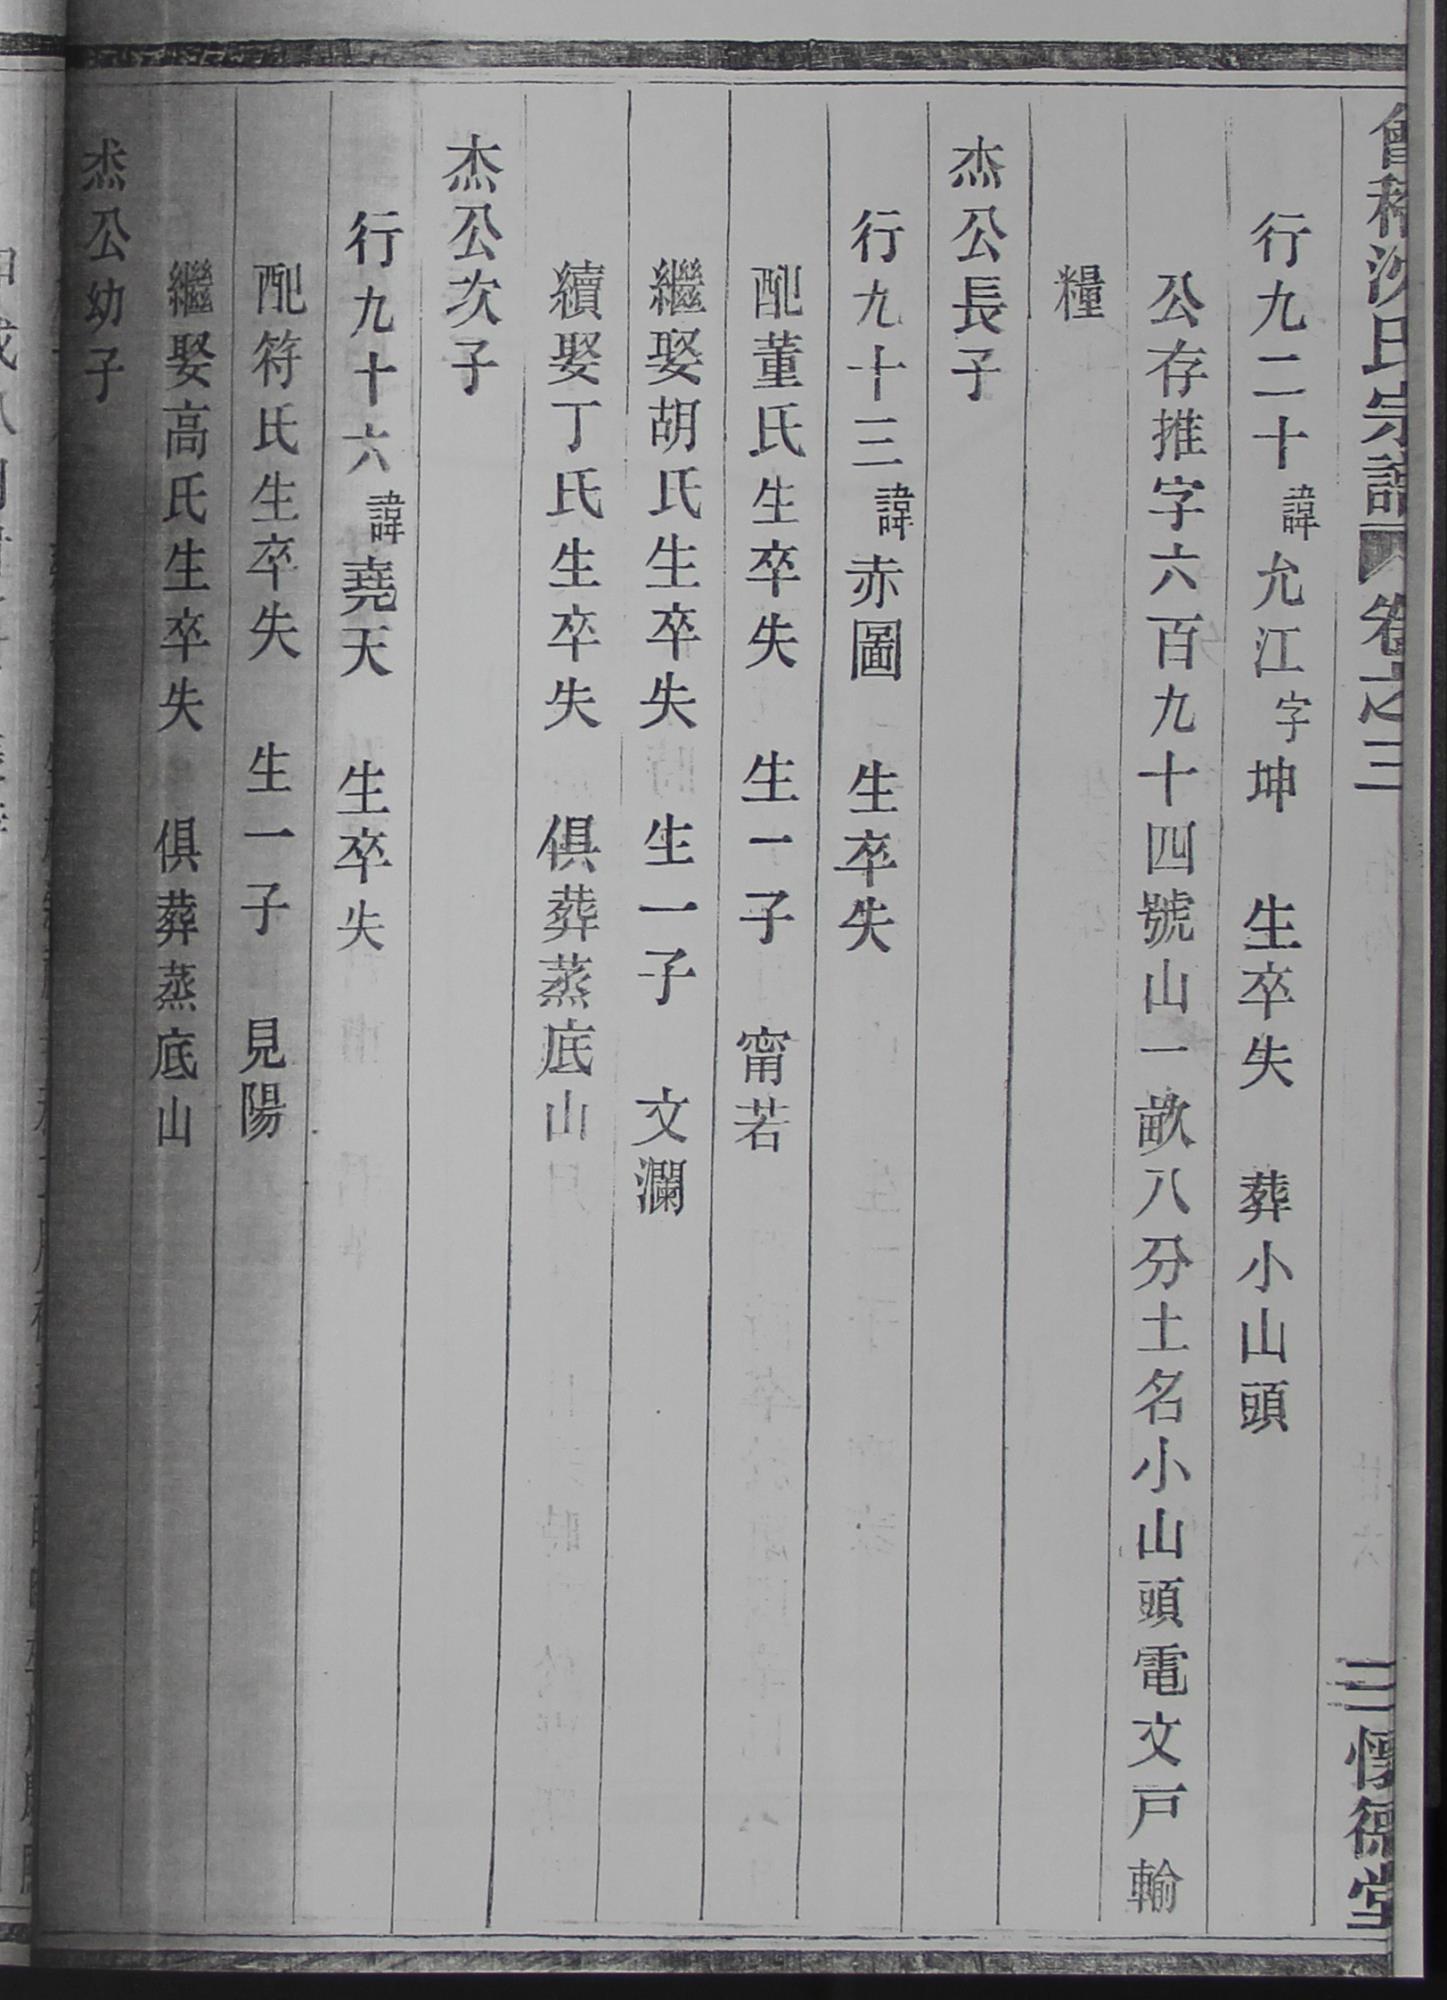 會稽沈氏宗譜 卷之三 三 懷德堂
行九二十諱允江字坤 生卒失 葬小山頭
公存推字六百九十四號山一畝八分土名小山頭電文戸輸
糧
杰公長子
行九十三諱赤圖 生卒失
配董氏生卒失 生一子 甯若
繼娶胡氏生卒失 生一子 文瀾
續娶丁氏生卒失 俱葬蒸底山
杰公次子
行九十六諱堯天 生卒失
配符氏生卒失 生一子 見陽
繼娶高氏生卒失 俱葬蒸底山
杰公幼子